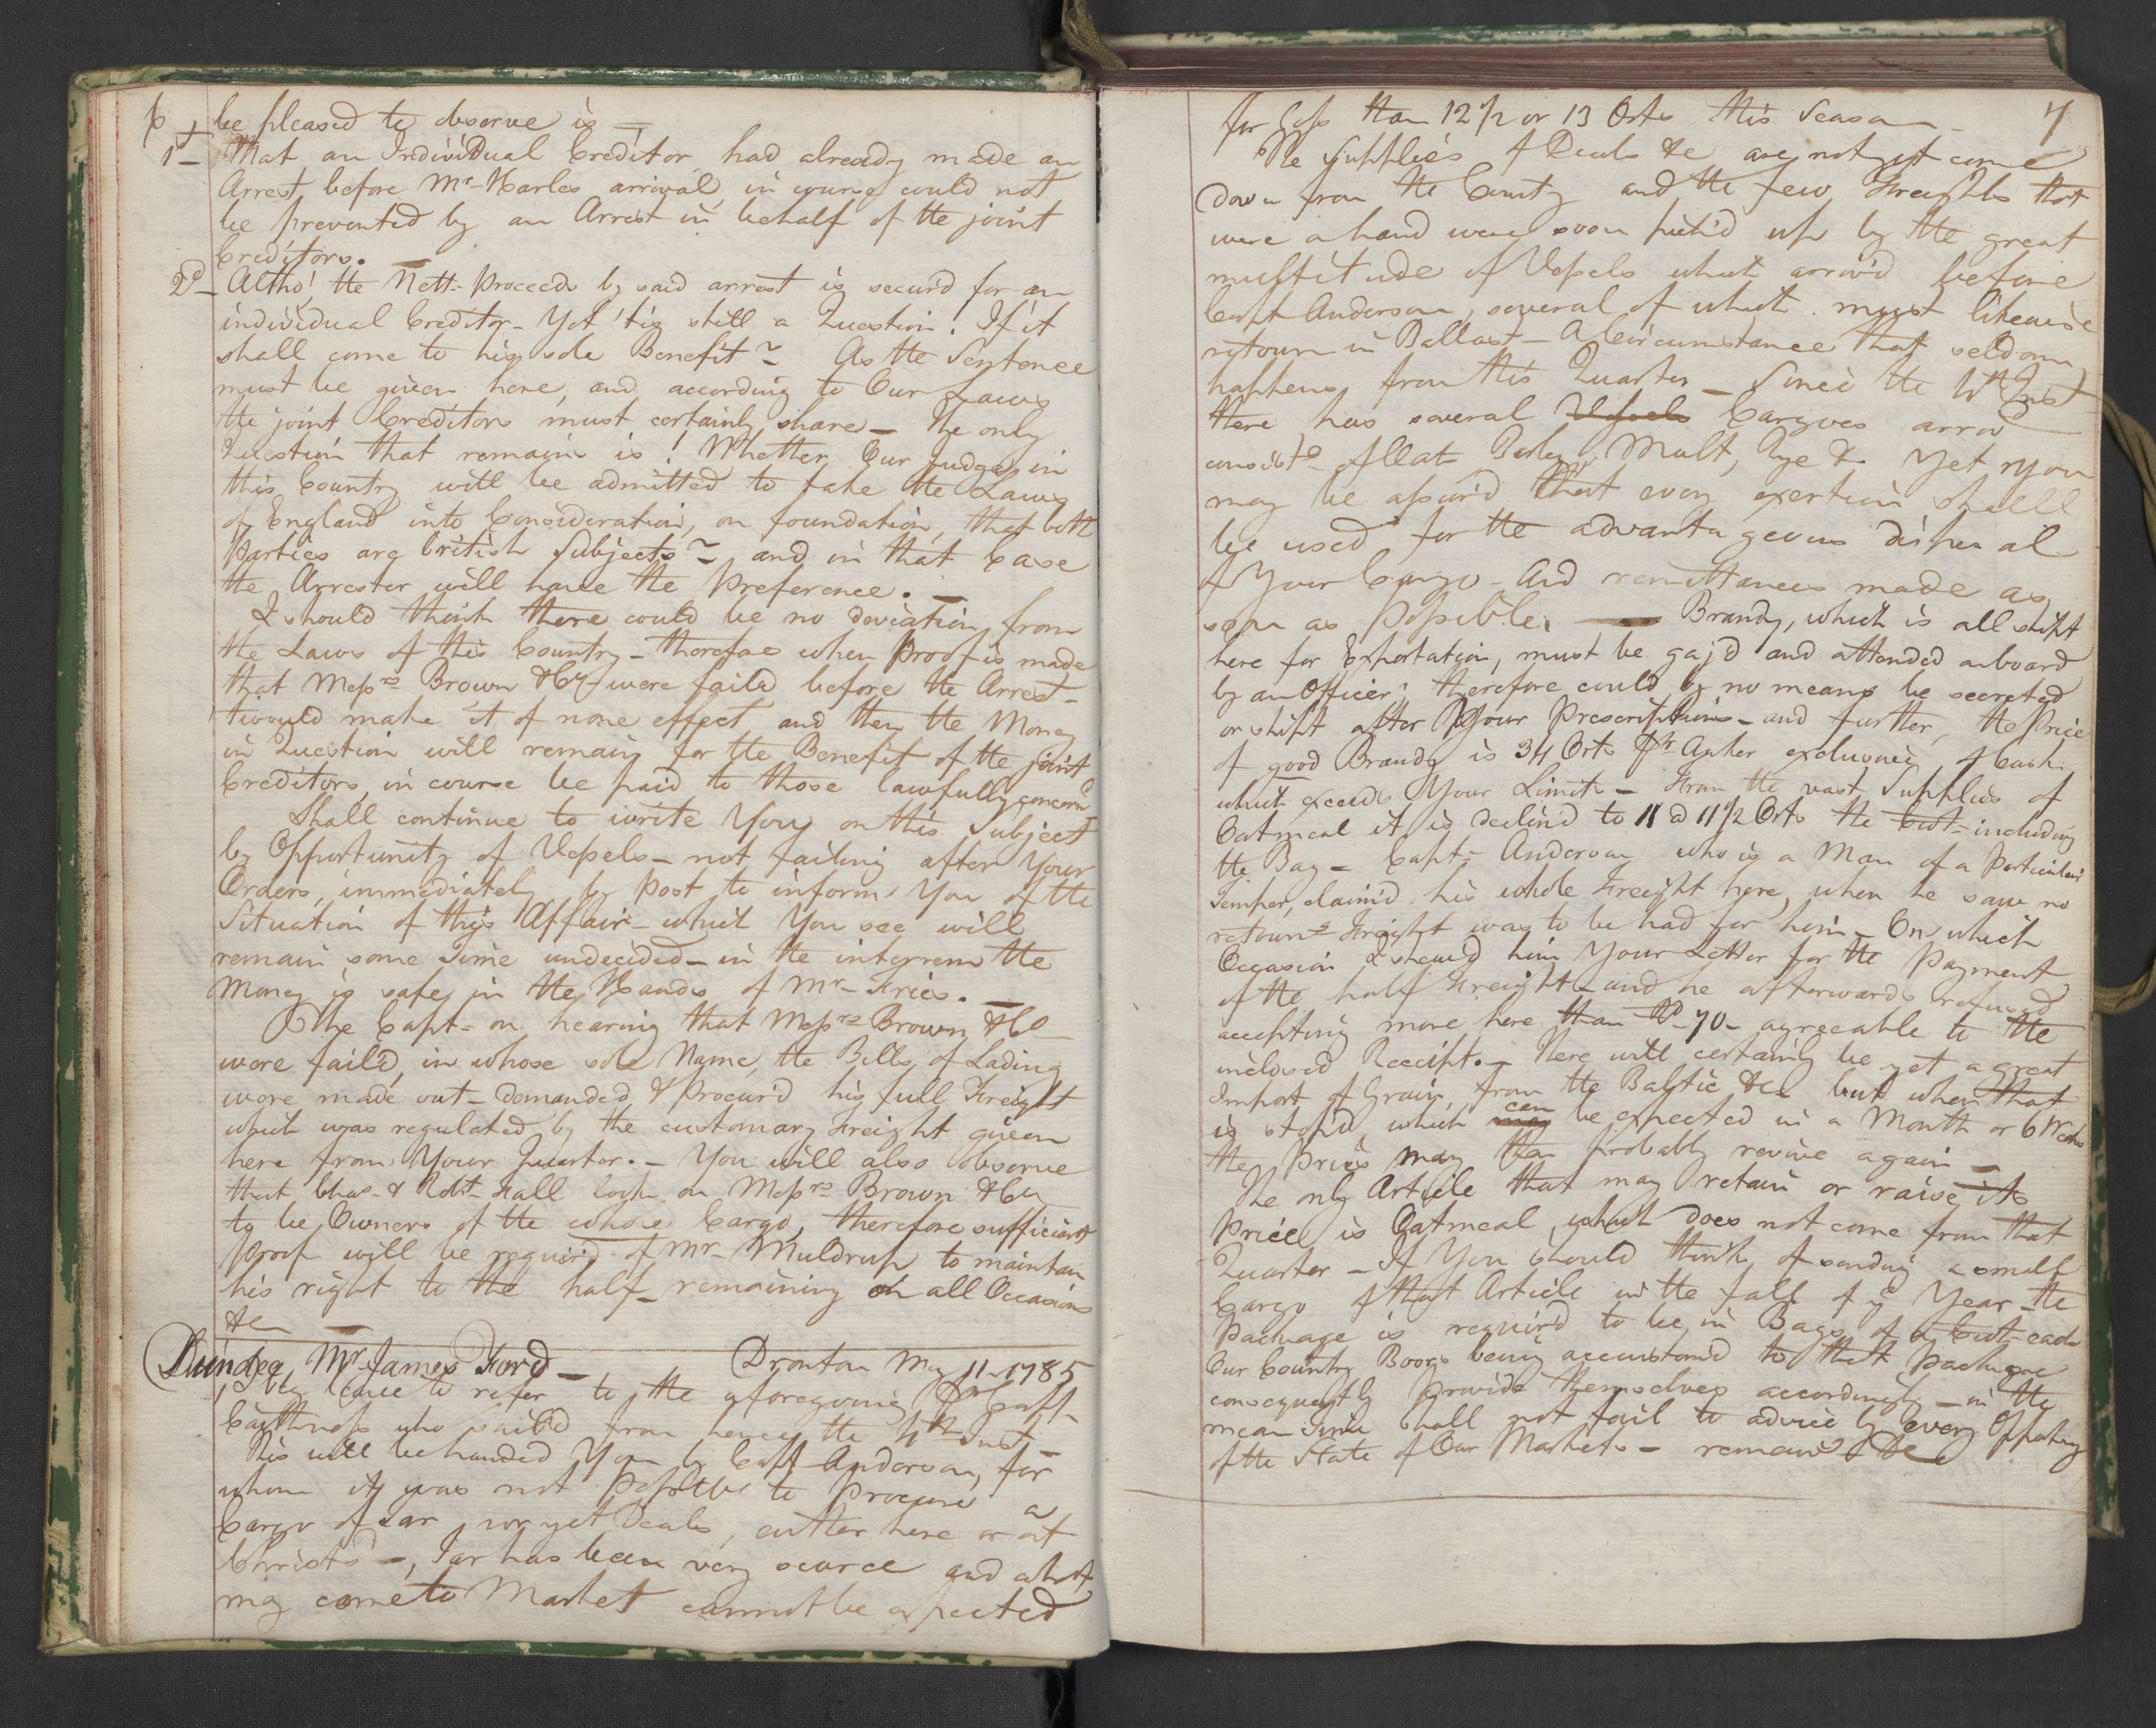 6
be pleased to observe is —
1st — That an Individual Creditor had already made an
Arrest before Mr. Harles arrival, in course could not
be prevented by an Arrest in behalf of the joint
Creditors. —
2d — Altho' the Nett Proceeds by said arrest is secur'd for an
individual Creditor — Yet 'tis still a Question! If it
shall come to his sole Benefit ~ As the Sentence
must be given here, and according to Our Laws
the joint Creditors must certainly share — The only
Question that remains is! Whether Our Judges in
this Country will be admitted to take the Laws
of England into Consideration, on foundation, that both
Parties are british Subjects ~ and in that Case
the Arrester will have the Preference. —
I should think there could be no deviation from
the Laws of this Country — therefore when Proof is made
that Messrs Brown & Co were faild before the Arrest —
twould make it of none effect and then the Money
in Question will remain for the Benefit of the joint
Creditors, in course be paid to those lawfully concern'd
Shall continue to write You on this Subject
by Opportunity of Vessels — not failing after Your
Orders, immediately by Post to inform You of the
Situation of this Affair — which You see will
remain some Time undecided — in the interrem the
Money is safe in the Hands of Mr. Fries. —
The Capt — on hearing that Messrs Brown & Co —
were faild, in whose sole Name, the Bills of Lading
were made out — demanded & Procur'd his full Freight
which was regulated by the customary Freight given
here from Your Quarter. — You will also Observe
that Chas & Robt Fall look on Messrs Brown & Co
to be Owners of the whole Cargo, therefore sufficient
Proof will be requir'd of Mr. Muldrup to maintain
his right to the half — remaining on all Occasions
&c —
Dundee Mr James Ford — Dronton My 11 — 1785
I beg leave to refer to the aforegoing Pr Capt
Caithness who sail'd from hence the 4th Inst —
This will be handed You by Capt Anderson, for
whom it was not Possible to Procure a
Cargo of Tar, nor yet Deals, either here or at
Christd —, Tar has been very scarce and what
may come to Market cannot be expected
7
for less than 12 1/2 or 13 Orts this Season —
The Supplies of Deals &c are not yet come
down from the Country and the few Freights that
were a hand were soon pick'd up by the great
multitude of Vessels which arriv'd before
Capt Anderson, several of which must likewise
return in Ballast — A Circumstance that seldom
happens from this Quarter — Since the 4th Inst
there has several Vessels Cargoes arriv'd
consistg of Oats Barley, Malt, Rye & Yet you
may be assur'd that every exertion shall
be used for the advantageous disposal
of Your Cargo — And remittances made as
soon as Possible. — Brandy, which is all shipt
here for Exportation, must be gaj'd and attended aboard
by an Officer; therefore could by no means be secreted
or shipt after Your Prescription — and further, the Price
of good Brandy is 34 Orts Pr Anker exclusive of Cask
which exceeds Your Limits — From the vast Supplies of
Oatmeal it is declin'd to 11 @ 11 1/2 Orts the Cwt — including
the Bag — Capt — Anderson who is a Man of a Particular
Temper, claim'd his whole Freight here, when he saw no
return Freight was to be had for him — On which
Occasion I shew'd him Your Letter for the Payment
of the half Freight — and he afterwards refused
accepting more here than Rd 70 — agreeable to the
inclosed Receipt. — There will certainly be yet a great
Import of Grain from the Baltic &c but when that
is stop'd which may can be expected in a Month or 6 Weeks
the Prices may then probably revive again —
The only Article that may retain or raise its
Price is Oatmeal, which does not come from that
Quarter — If You should think of sending a small
Cargo of that Article in the fall of ye Year — the
Package is requir'd to be in Bags of a Cwt each
Our Country Boors being accustom'd to that Package
consequently Provide themselves accordingly — in the
mean Time shall not fail to advice by every Oppotuny
of the State of Our Markets — remains &c